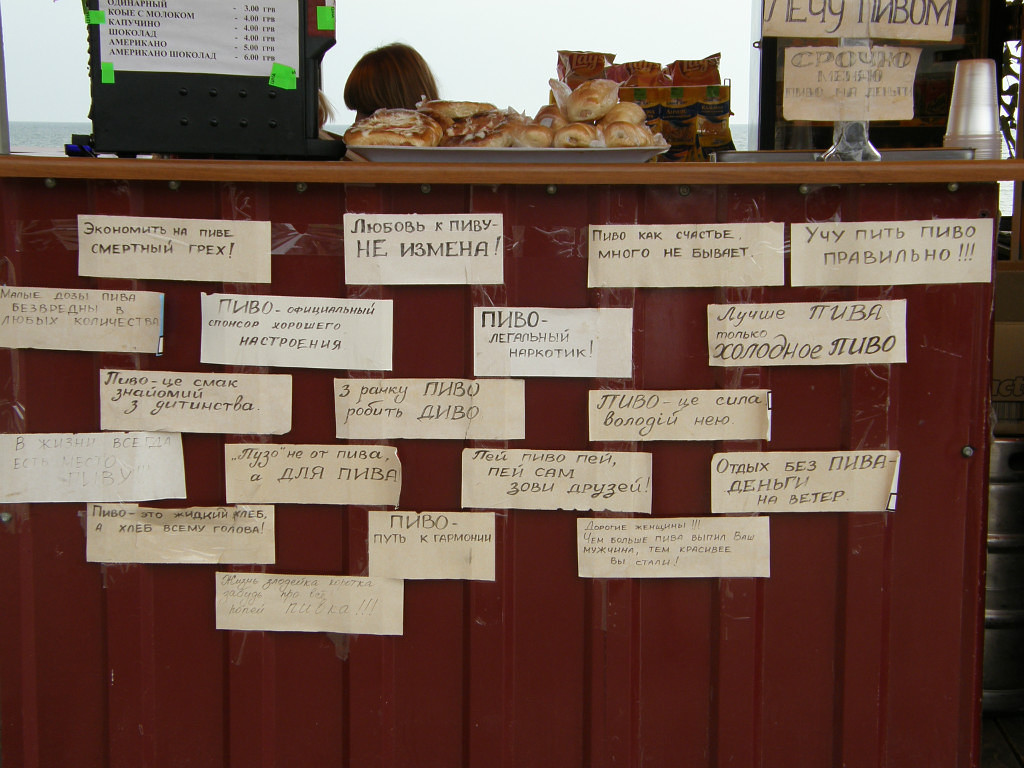 ОДИНАРНЫЙ - 3.00 ГРН
КОФЕ С МОЛОКОМ - 4.00 ГРН
КАПУЧИНО - 4.00 ГРН
ШОКОЛАД - 4.00 ГРН
АМЕРИКАНО - 5.00 ГРН
АМЕРИКАНО ШОКОЛАД - 6.00 ГРН
ЛЕЧУ ПИВОМ
СРОЧНО
МЕНЯЮ
ПИВО НА ДЕНЬГИ
Экономить на пиве
смертный грех!
Любовь к пиву-
НЕ ИЗМЕНА!
Пиво как счастье,
много не бывает.
Учу пить пиво
правильно!!!
Малые дозы пива
безвредны в
любых количества
ПИВО - официальный
спонсор хорошего
настроения
ПИВО-
легальный
наркотик!
Лучше ПИВА
только
холодное ПИВО
Пиво - це смак
знайомий
з дитинства.
З ранку ПИВО
робить ДИВО
ПИВО - це сила,
володій нею.
В жизни всегда
есть место
ПИВУ...
„Пузо" не от пива,
а ДЛЯ ПИВА
Пей пиво пей,
пей сам
зови друзей!
Отдых без ПИВА-
деньги
на ветер.
Пиво - это жидкий хлеб,
а хлеб всему голова!
ПИВО-
путь к гармонии
Дорогие женщины!!!
Чем больше пива выпил Ваш
мужчина, тем красивее
вы стали!
Жизнь злодейка коротка
забудь про всё,
попей пивка!!!